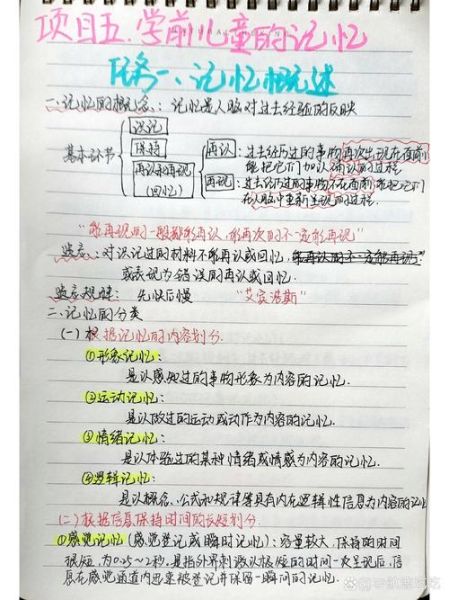 项目五.学前儿童的记忆
任务一、记忆概述
一.记忆的概念:记忆是人脑对过去经验的反映
基本环节
识记
保持
再认和再现
(回忆)
再认:过去经历过的事物再次出现在面前
能把它们加以确认的过程
再现:过去经历过的事物不在面前,能把它们
在人脑中重新呈现的过程.
"能再现的一般都能再认,能再认的不一定能再现"
遗忘:对识记过的材料不能再认或回忆,
或表记为错误的再认或回忆.
遗忘规律:先快后慢 "艾宾浩斯"
二.记忆的分类
(一)根据记忆的内容划分.
①形象记忆:
是以感知过的事物形象为内容的记忆.
②运动记忆:
是以做过的运动或动作为内容的记忆.
③情绪记忆:
是以体验过的某种情绪或情感为内容的记忆.
④逻辑记忆:
是以概念、公式和规律等具有内在逻辑性信息为内容的记忆
(二)根据信息保持时间的长短划分.
①感觉记忆(感觉登记或瞬时记忆):容量较大,保持的时间
很短,为0.25~2秒.是指外界刺激以极短的时间一次呈现后,信
息在感觉通道内迅速被登记并保留一瞬间的记忆.